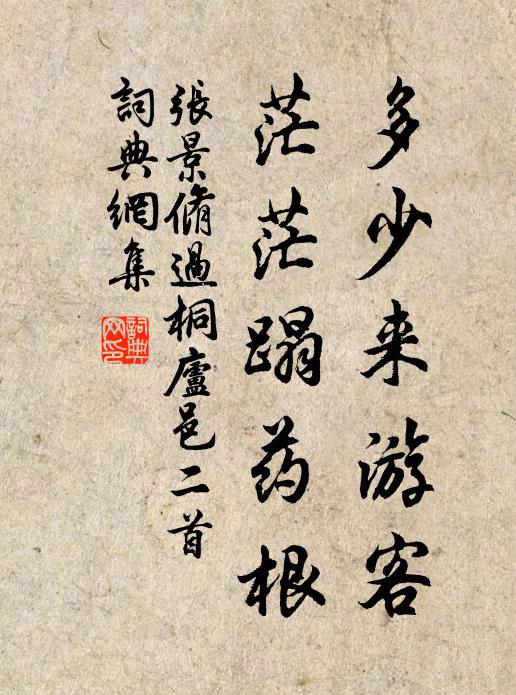 多少来游客
茫茫蹋药根
張景脩過桐廬邑二首
詞典網集
詞典網印